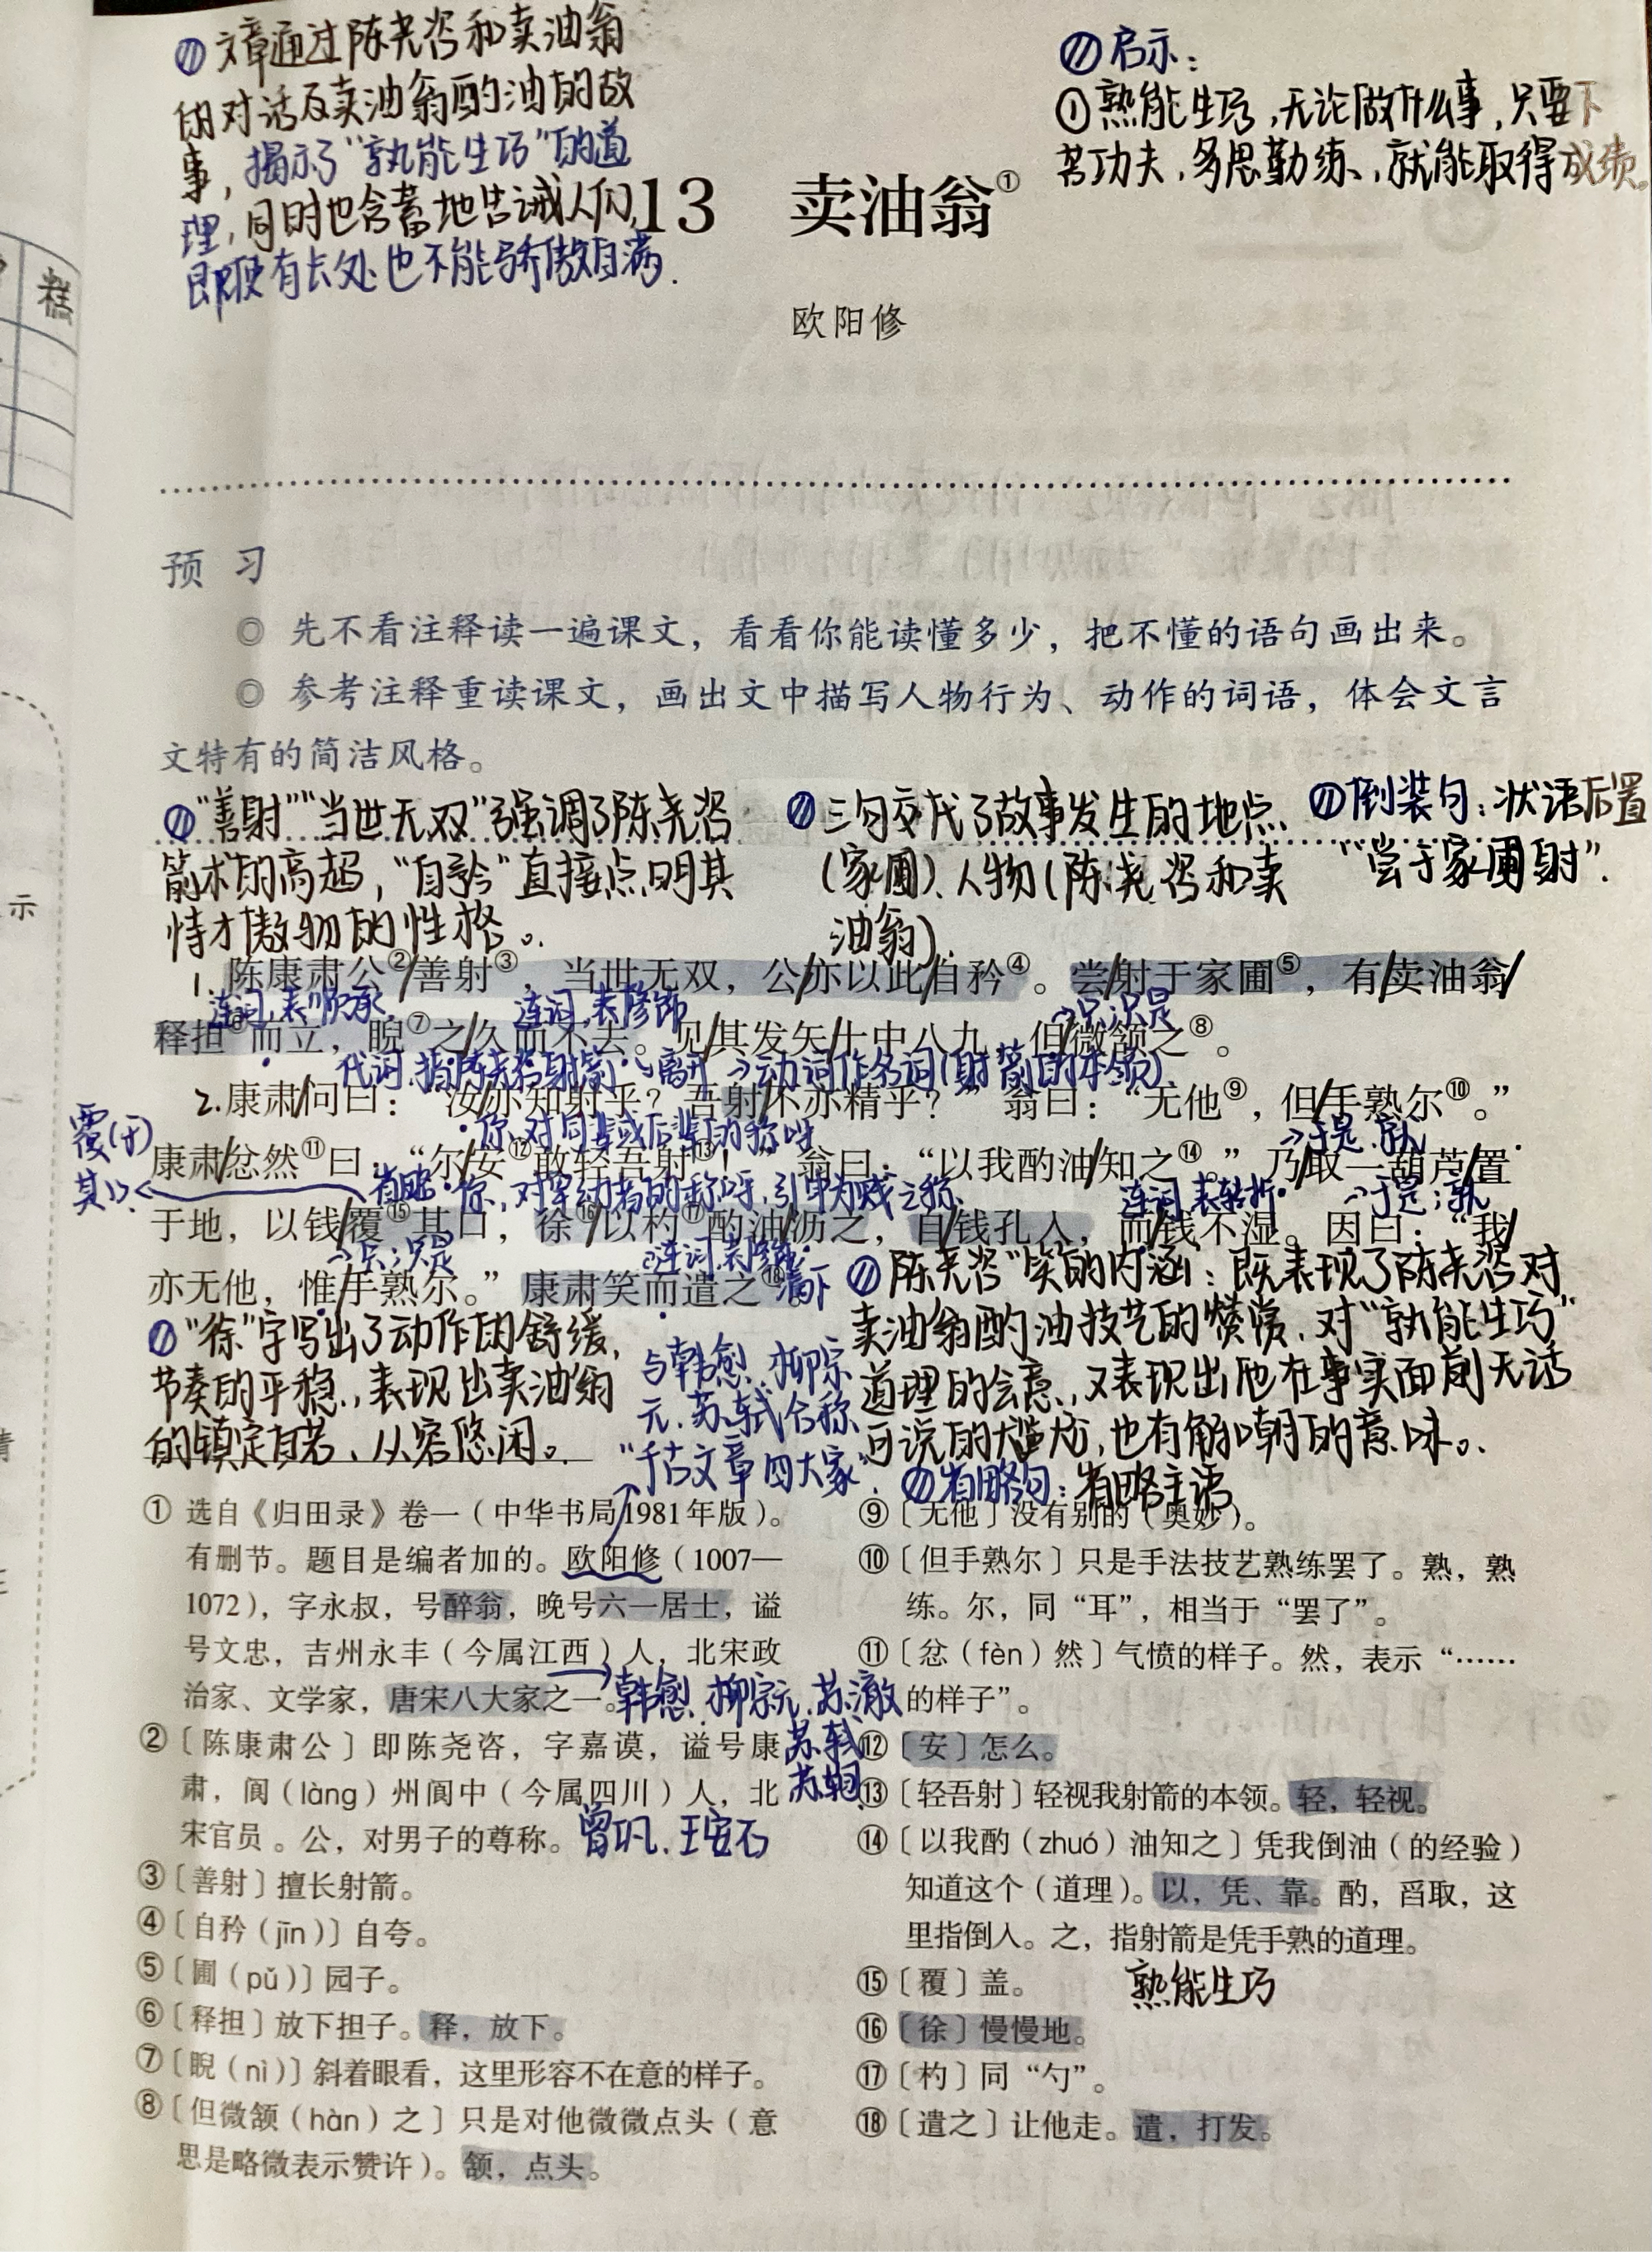 ⑪ 文章通过陈尧咨和卖油翁
的对话及卖油翁酌油的故
事，揭示了“孰能生巧”的道
理，同时也含蓄地告诫人们，
即使有长处也不能骄傲自满.
⑪ 启示：
①熟能生巧，无论做什么事，只要下
苦功夫，多思勤练，就能取得成绩。
13 卖油翁①
欧阳修
糕
预 习
◎ 先不看注释读一遍课文，看看你能读懂多少，把不懂的语句画出来。
◎ 参考注释重读课文，画出文中描写人物行为、动作的词语，体会文言
文特有的简洁风格。
示
⑪“善射”“当世无双”强调了陈尧咨
箭术的高超，“自矜”直接点明其
恃才傲物的性格。
⑪ 三句交代了故事发生的地点
（家圃）、人物（陈尧咨和卖
油翁）.
⑪ 倒装句：状语后置
“尝于家圃射”.
1. 陈康肃公②善射③，当世无双，公亦以此自矜④。尝射于家圃⑤，有卖油翁
连词，表顺承. 连词，表修饰 →只，只是
释担⑥而立，睨⑦之久而不去。见其发矢十中八九，但微颔之⑧。
代词，指陈尧咨射箭 离开 →动词作名词（射箭的本领）
2. 康肃问曰：“汝亦知射乎？吾射不亦精乎？”翁曰：“无他⑨，但手熟尔⑩。”
你，对同辈或后辈的称呼 →于是，就
覆（于）
其口.
康肃忿然⑪曰：“尔安⑫敢轻吾射⑬！”翁曰：“以我酌油知之⑭。”乃取一葫芦置
省略 你，对年幼者的称呼，引申为贱之称. 连词，表转折 →于是；就
于地，以钱覆⑮其口，徐⑯以杓⑰酌油沥之，自钱孔入，而钱不湿。因曰：“我
→只；只是 连词，表修饰
亦无他，惟手熟尔。”康肃笑而遣之⑱。
⑪“徐”字写出了动作的舒缓，
节奏的平稳，表现出卖油翁
的镇定自若、从容悠闲。
与韩愈、柳宗
元、苏轼合称
“千古文章四大家”
⑪ 陈尧咨“笑”的内涵：既表现了陈尧咨对
卖油翁酌油技艺的赞赏、对“孰能生巧”
道理的会意，又表现出他在事实面前无话
可说的尴尬，也有解嘲的意味。
⑪ 省略句：省略主语
① 选自《归田录》卷一（中华书局1981年版）。
有删节。题目是编者加的。欧阳修（1007—
1072），字永叔，号醉翁，晚号六一居士，谥
号文忠，吉州永丰（今属江西）人，北宋政
治家、文学家，唐宋八大家之一。
韩愈、柳宗元、苏澈
苏轼
苏轼
曾巩、王安石
②〔陈康肃公〕即陈尧咨，字嘉谟，谥号康
肃，阆（làng）州阆中（今属四川）人，北
宋官员。公，对男子的尊称。
③〔善射〕擅长射箭。
④〔自矜（jīn）〕自夸。
⑤〔圃（pǔ）〕园子。
⑥〔释担〕放下担子。释，放下。
⑦〔睨（nì）〕斜着眼看，这里形容不在意的样子。
⑧〔但微颔（hàn）之〕只是对他微微点头（意
思是略微表示赞许）。颔，点头。
⑨〔无他〕没有别的（奥妙）。
⑩〔但手熟尔〕只是手法技艺熟练罢了。熟，熟
练。尔，同“耳”，相当于“罢了”。
⑪〔忿（fèn）然〕气愤的样子。然，表示“……
的样子”。
⑫〔安〕怎么。
⑬〔轻吾射〕轻视我射箭的本领。轻，轻视。
⑭〔以我酌（zhuó）油知之〕凭我倒油（的经验）
知道这个（道理）。以，凭、靠。酌，舀取，这
里指倒入。之，指射箭是凭手熟的道理。
熟能生巧
⑮〔覆〕盖。
⑯〔徐〕慢慢地。
⑰〔杓〕同“勺”。
⑱〔遣之〕让他走。遣，打发。